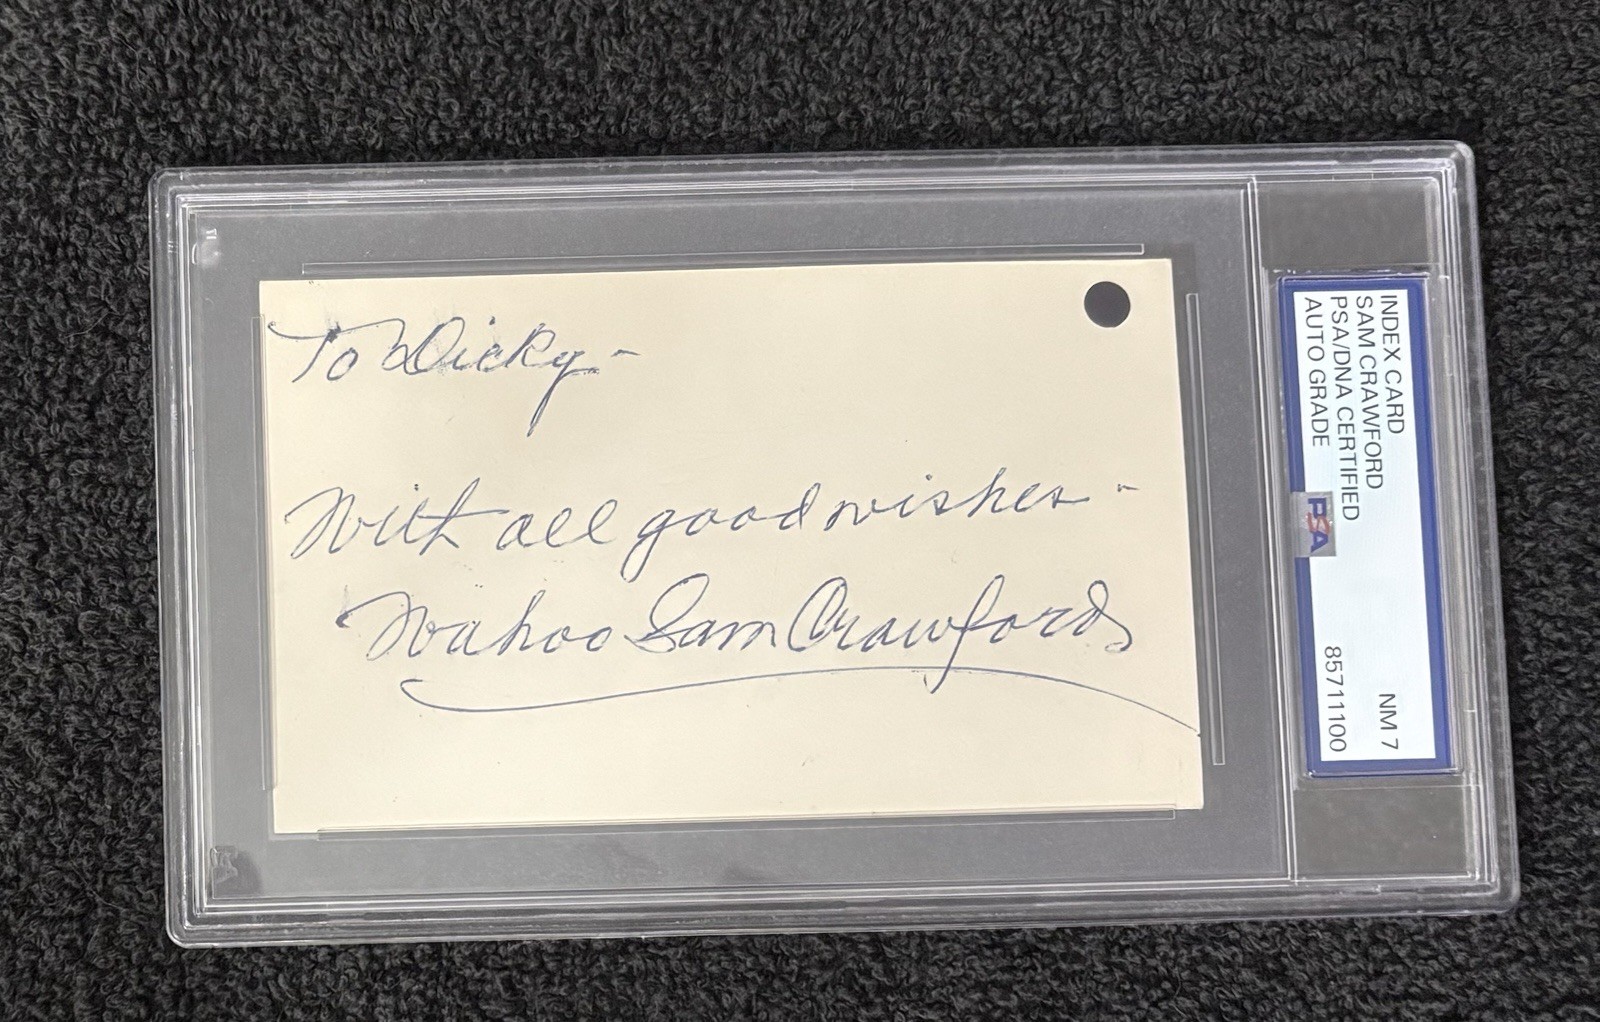 To Dicky -
With all good wishes -
Wahoo Sam Crawford
INDEX CARD
SAM CRAWFORD
PSA/DNA CERTIFIED
AUTO GRADE
NM 7
85711100
PSA